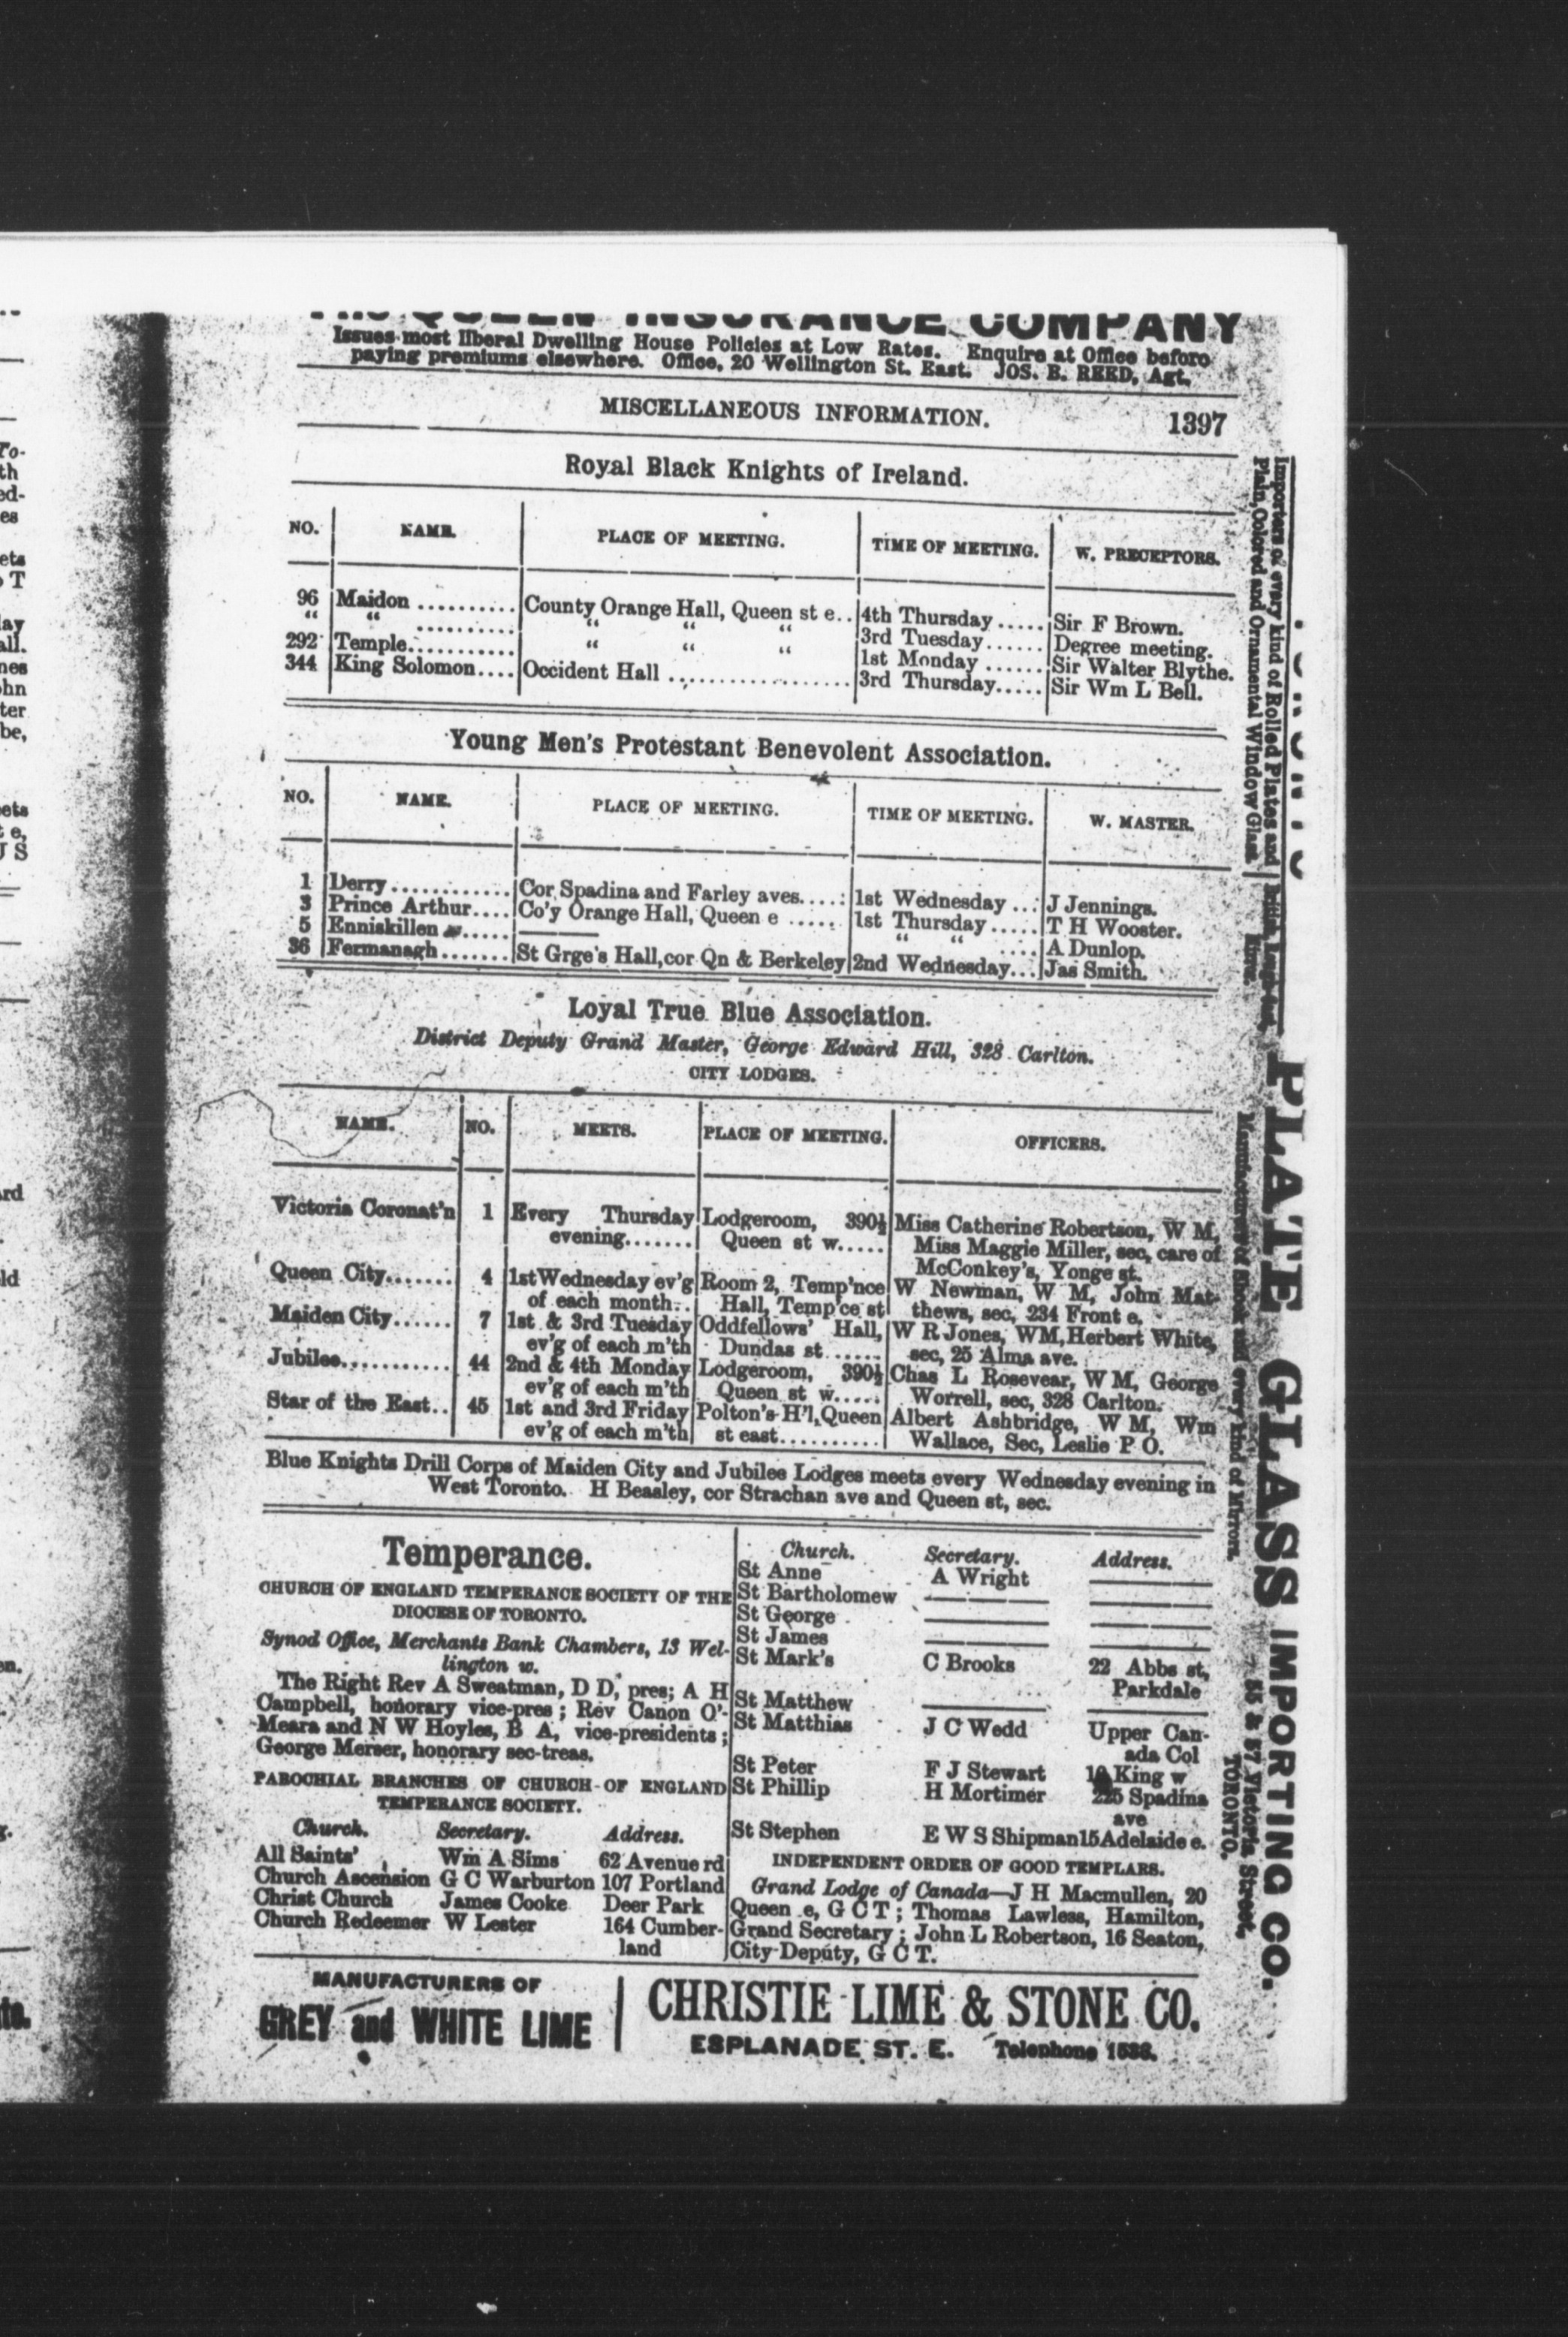 QUEEN INSURANCE COMPANY
Issues most liberal Dwelling House Policies at Low Rates. Enquire at Office before
paying premiums elsewhere. Office, 20 Wellington St. East. JOS. B. REED, Agt.
MISCELLANEOUS INFORMATION. 1397
Royal Black Knights of Ireland.
NO. NAME. PLACE OF MEETING. TIME OF MEETING. W. PRECEPTORS.
96 Maidon .......... County Orange Hall, Queen st e.. 4th Thursday ..... Sir F Brown.
“ “ .......... “ “ “ 3rd Tuesday...... Degree meeting.
292 Temple........... “ “ “ 1st Monday ...... Sir Walter Blythe.
344 King Solomon.... Occident Hall ................. 3rd Thursday..... Sir Wm L Bell.
Young Men's Protestant Benevolent Association.
NO. NAME. PLACE OF MEETING. TIME OF MEETING. W. MASTER.
1 Derry............ Cor Spadina and Farley aves.... 1st Wednesday ... J Jennings.
3 Prince Arthur.... Co'y Orange Hall, Queen e ..... 1st Thursday ..... T H Wooster.
5 Enniskillen ..... —— “ “ .... A Dunlop.
36 Fermanagh....... St Grge's Hall, cor Qn & Berkeley 2nd Wednesday... Jas Smith.
Loyal True Blue Association.
District Deputy Grand Master, George Edward Hill, 328 Carlton.
CITY LODGES.
NAME. NO. MEETS. PLACE OF MEETING. OFFICERS.
Victoria Coronat'n 1 Every Thursday Lodgeroom, 390½ Miss Catherine Robertson, W M,
evening....... Queen st w..... Miss Maggie Miller, sec, care of
McConkey's, Yonge st.
Queen City....... 4 1st Wednesday ev'g Room 2, Temp'nce W Newman, W M, John Mat-
of each month.. Hall, Temp'ce st thews, sec, 234 Front e.
Maiden City...... 7 1st & 3rd Tuesday Oddfellows' Hall, W R Jones, WM, Herbert White,
ev'g of each m'th Dundas st ...... sec, 25 Alma ave.
Jubilee........... 44 2nd & 4th Monday Lodgeroom, 390½ Chas L Rosevear, W M, George
ev'g of each m'th Queen st w..... Worrell, sec, 328 Carlton.
Star of the East.. 45 1st and 3rd Friday Polton's H'l, Queen Albert Ashbridge, W M, Wm
ev'g of each m'th st east.......... Wallace, Sec, Leslie P O.
Blue Knights Drill Corps of Maiden City and Jubilee Lodges meets every Wednesday evening in
West Toronto. H Beasley, cor Strachan ave and Queen st, sec.
Temperance.
CHURCH OF ENGLAND TEMPERANCE SOCIETY OF THE
DIOCESE OF TORONTO.
Synod Office, Merchants Bank Chambers, 13 Wel-
lington w.
The Right Rev A Sweatman, D D, pres; A H
Campbell, honorary vice-pres; Rev Canon O'-
Meara and N W Hoyles, B A, vice-presidents;
George Merser, honorary sec-treas.
PAROCHIAL BRANCHES OF CHURCH OF ENGLAND
TEMPERANCE SOCIETY.
Church. Secretary. Address.
All Saints' Wm A Sims 62 Avenue rd
Church Ascension G C Warburton 107 Portland
Christ Church James Cooke Deer Park
Church Redeemer W Lester 164 Cumber-
land
Church. Secretary. Address.
St Anne A Wright ———
St Bartholomew ——— ———
St George ——— ———
St James ——— ———
St Mark's C Brooks 22 Abbs st,
Parkdale
St Matthew ——— ———
St Matthias J C Wedd Upper Can-
ada Col
St Peter F J Stewart King w
St Phillip H Mortimer 225 Spadina
ave
St Stephen E W S Shipman 15 Adelaide e.
INDEPENDENT ORDER OF GOOD TEMPLARS.
Grand Lodge of Canada—J H Macmullen, 20
Queen e, G C T; Thomas Lawless, Hamilton,
Grand Secretary; John L Robertson, 16 Seaton,
City Deputy, G C T.
MANUFACTURERS OF
GREY and WHITE LIME
CHRISTIE LIME & STONE CO.
ESPLANADE ST. E. Telephone
Importers of every kind of Rolled Plates and
Plain, Colored and Ornamental Window Glass
PLATE GLASS IMPORTING CO.
Manufacturers of Shock and every kind of Mirrors.
55 & 57 Victoria Street,
TORONTO.